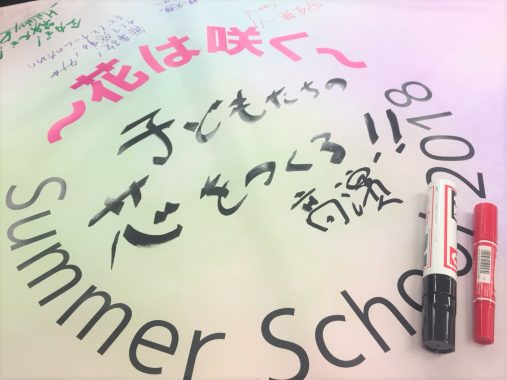 ～花は咲く～
子どもたちの
芯をつくる!!
高濱
Summer School 2018